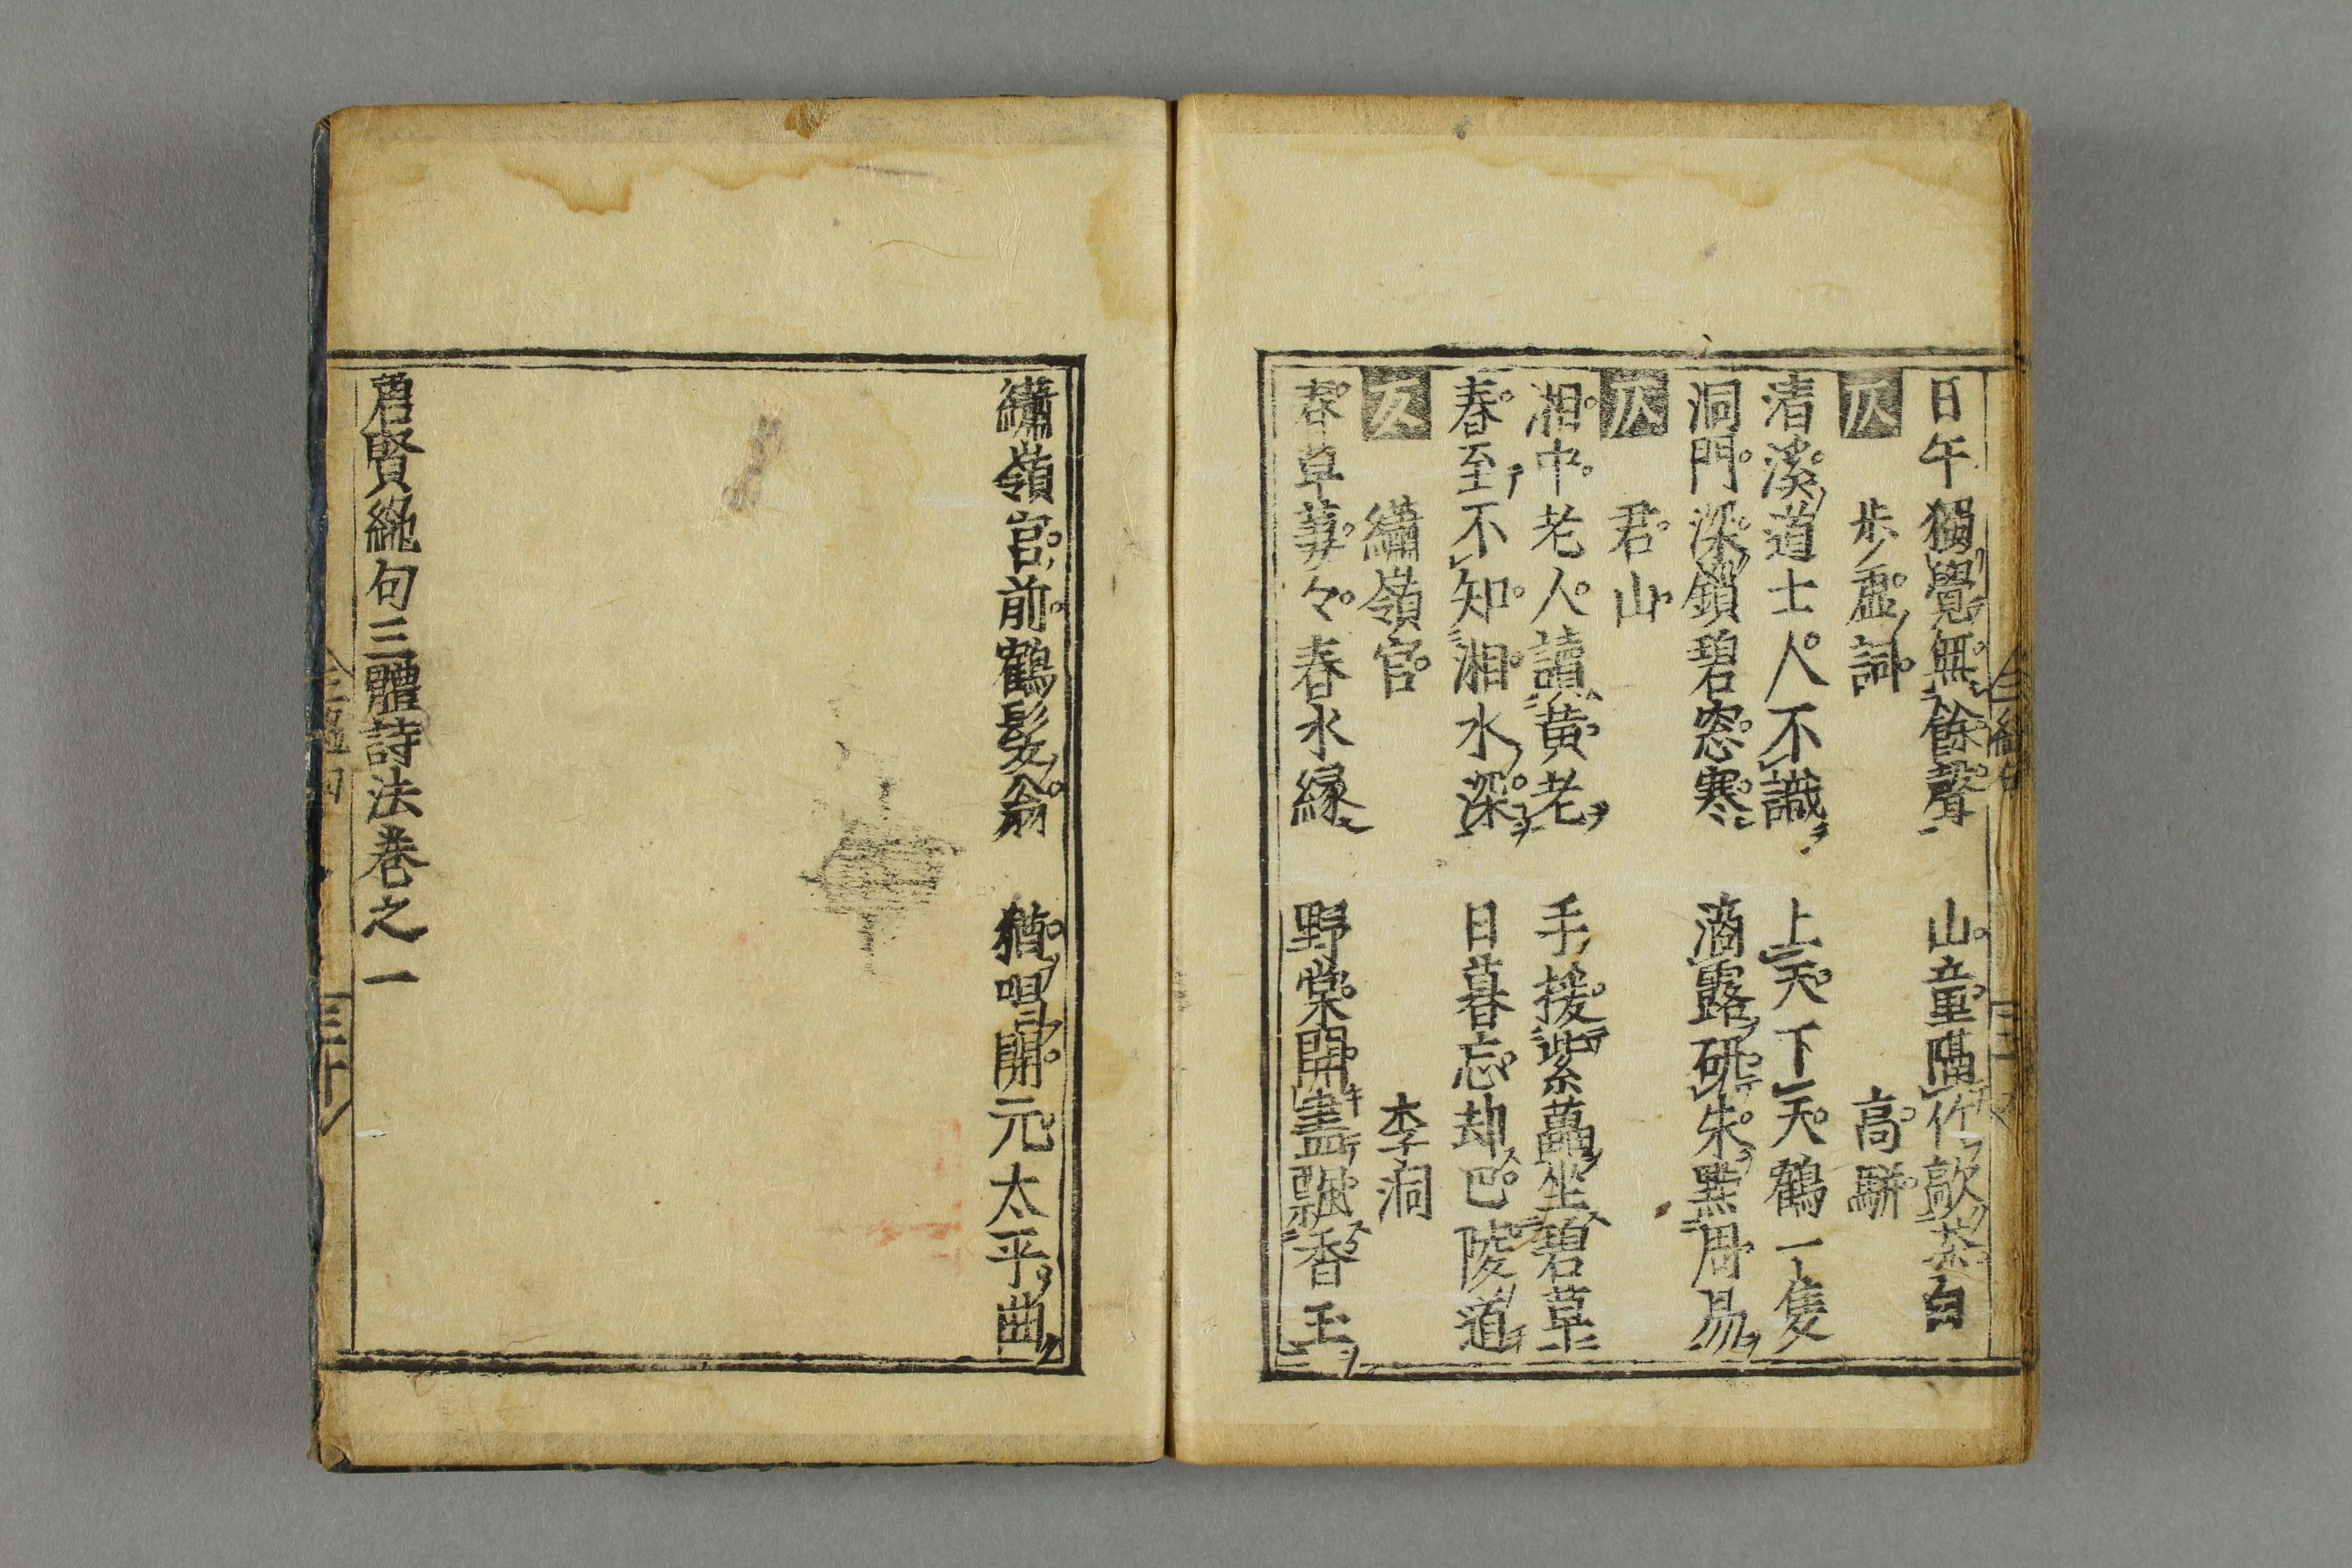 日午獨覺無餘聲　山童隔竹敲茶臼
仄　步虛詞　高駢
渚溪道士人不識　上天下天鶴一隻
洞門深鎖碧窓寒　滴露研朱點周易
仄　君山
湘中老人讀黄老　手援紫藟坐碧草
春至不知湘水深　日暮忘却巴陵道
仄　繡嶺宮　李洞
春草萋々春水緑　野棠開盡飄香玉
繡嶺宮前鶴髪翁　猶唱開元太平曲
唐賢絶句三體詩法卷之一